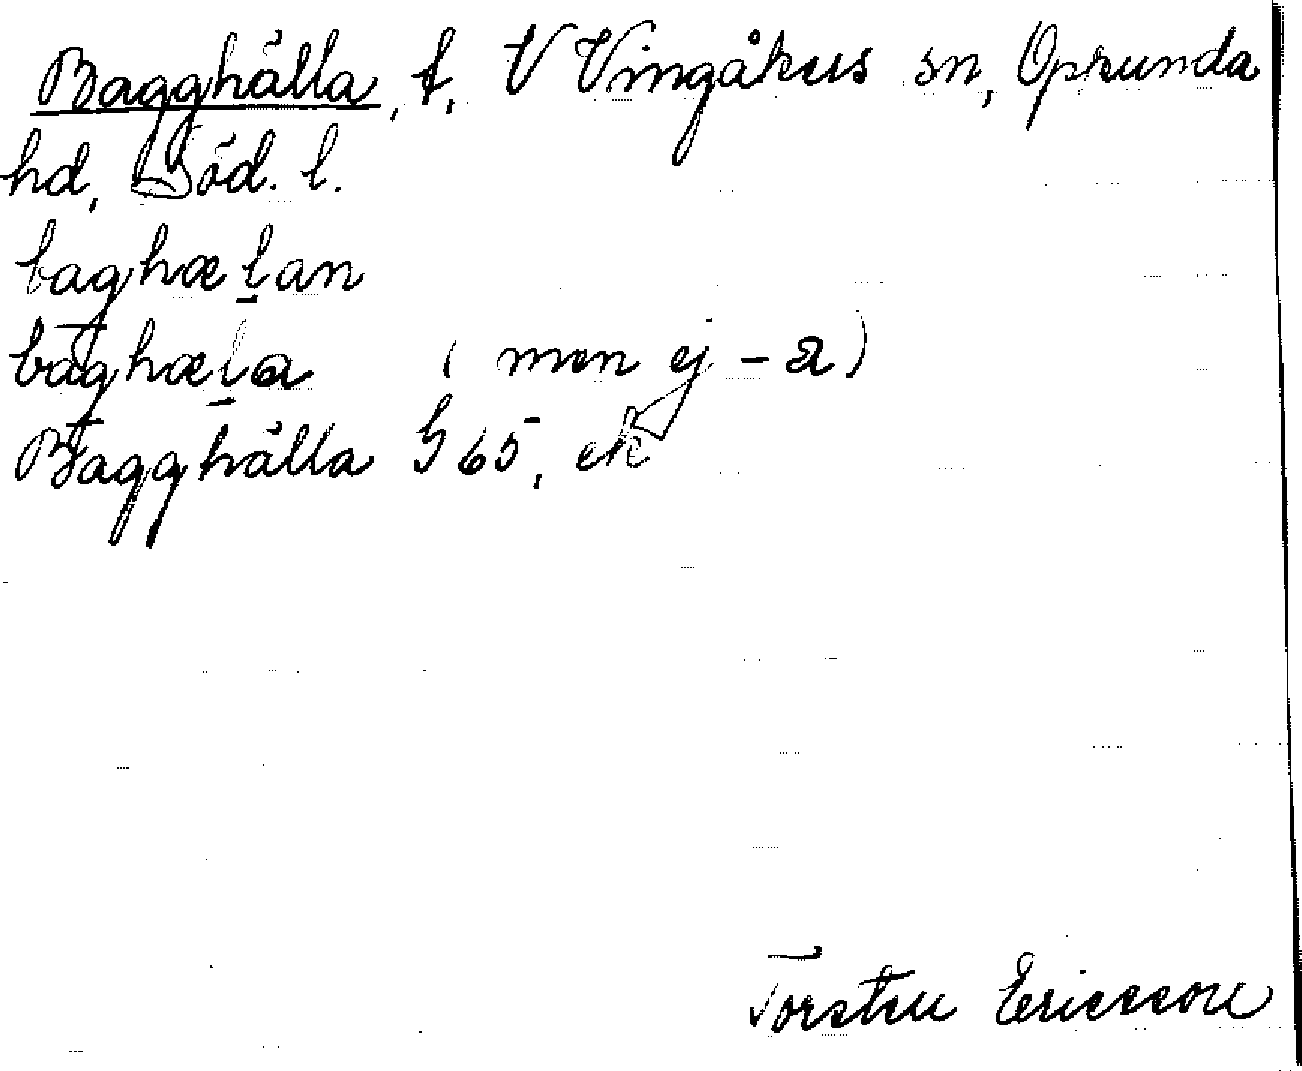 Bagghälla, t, V Vingåkers sn, Oppunda
hd, Söd. l.
baghæḻan
baghæḻa (men ej -a)
Bagghälla G 65, ek
Torsten Ericsson